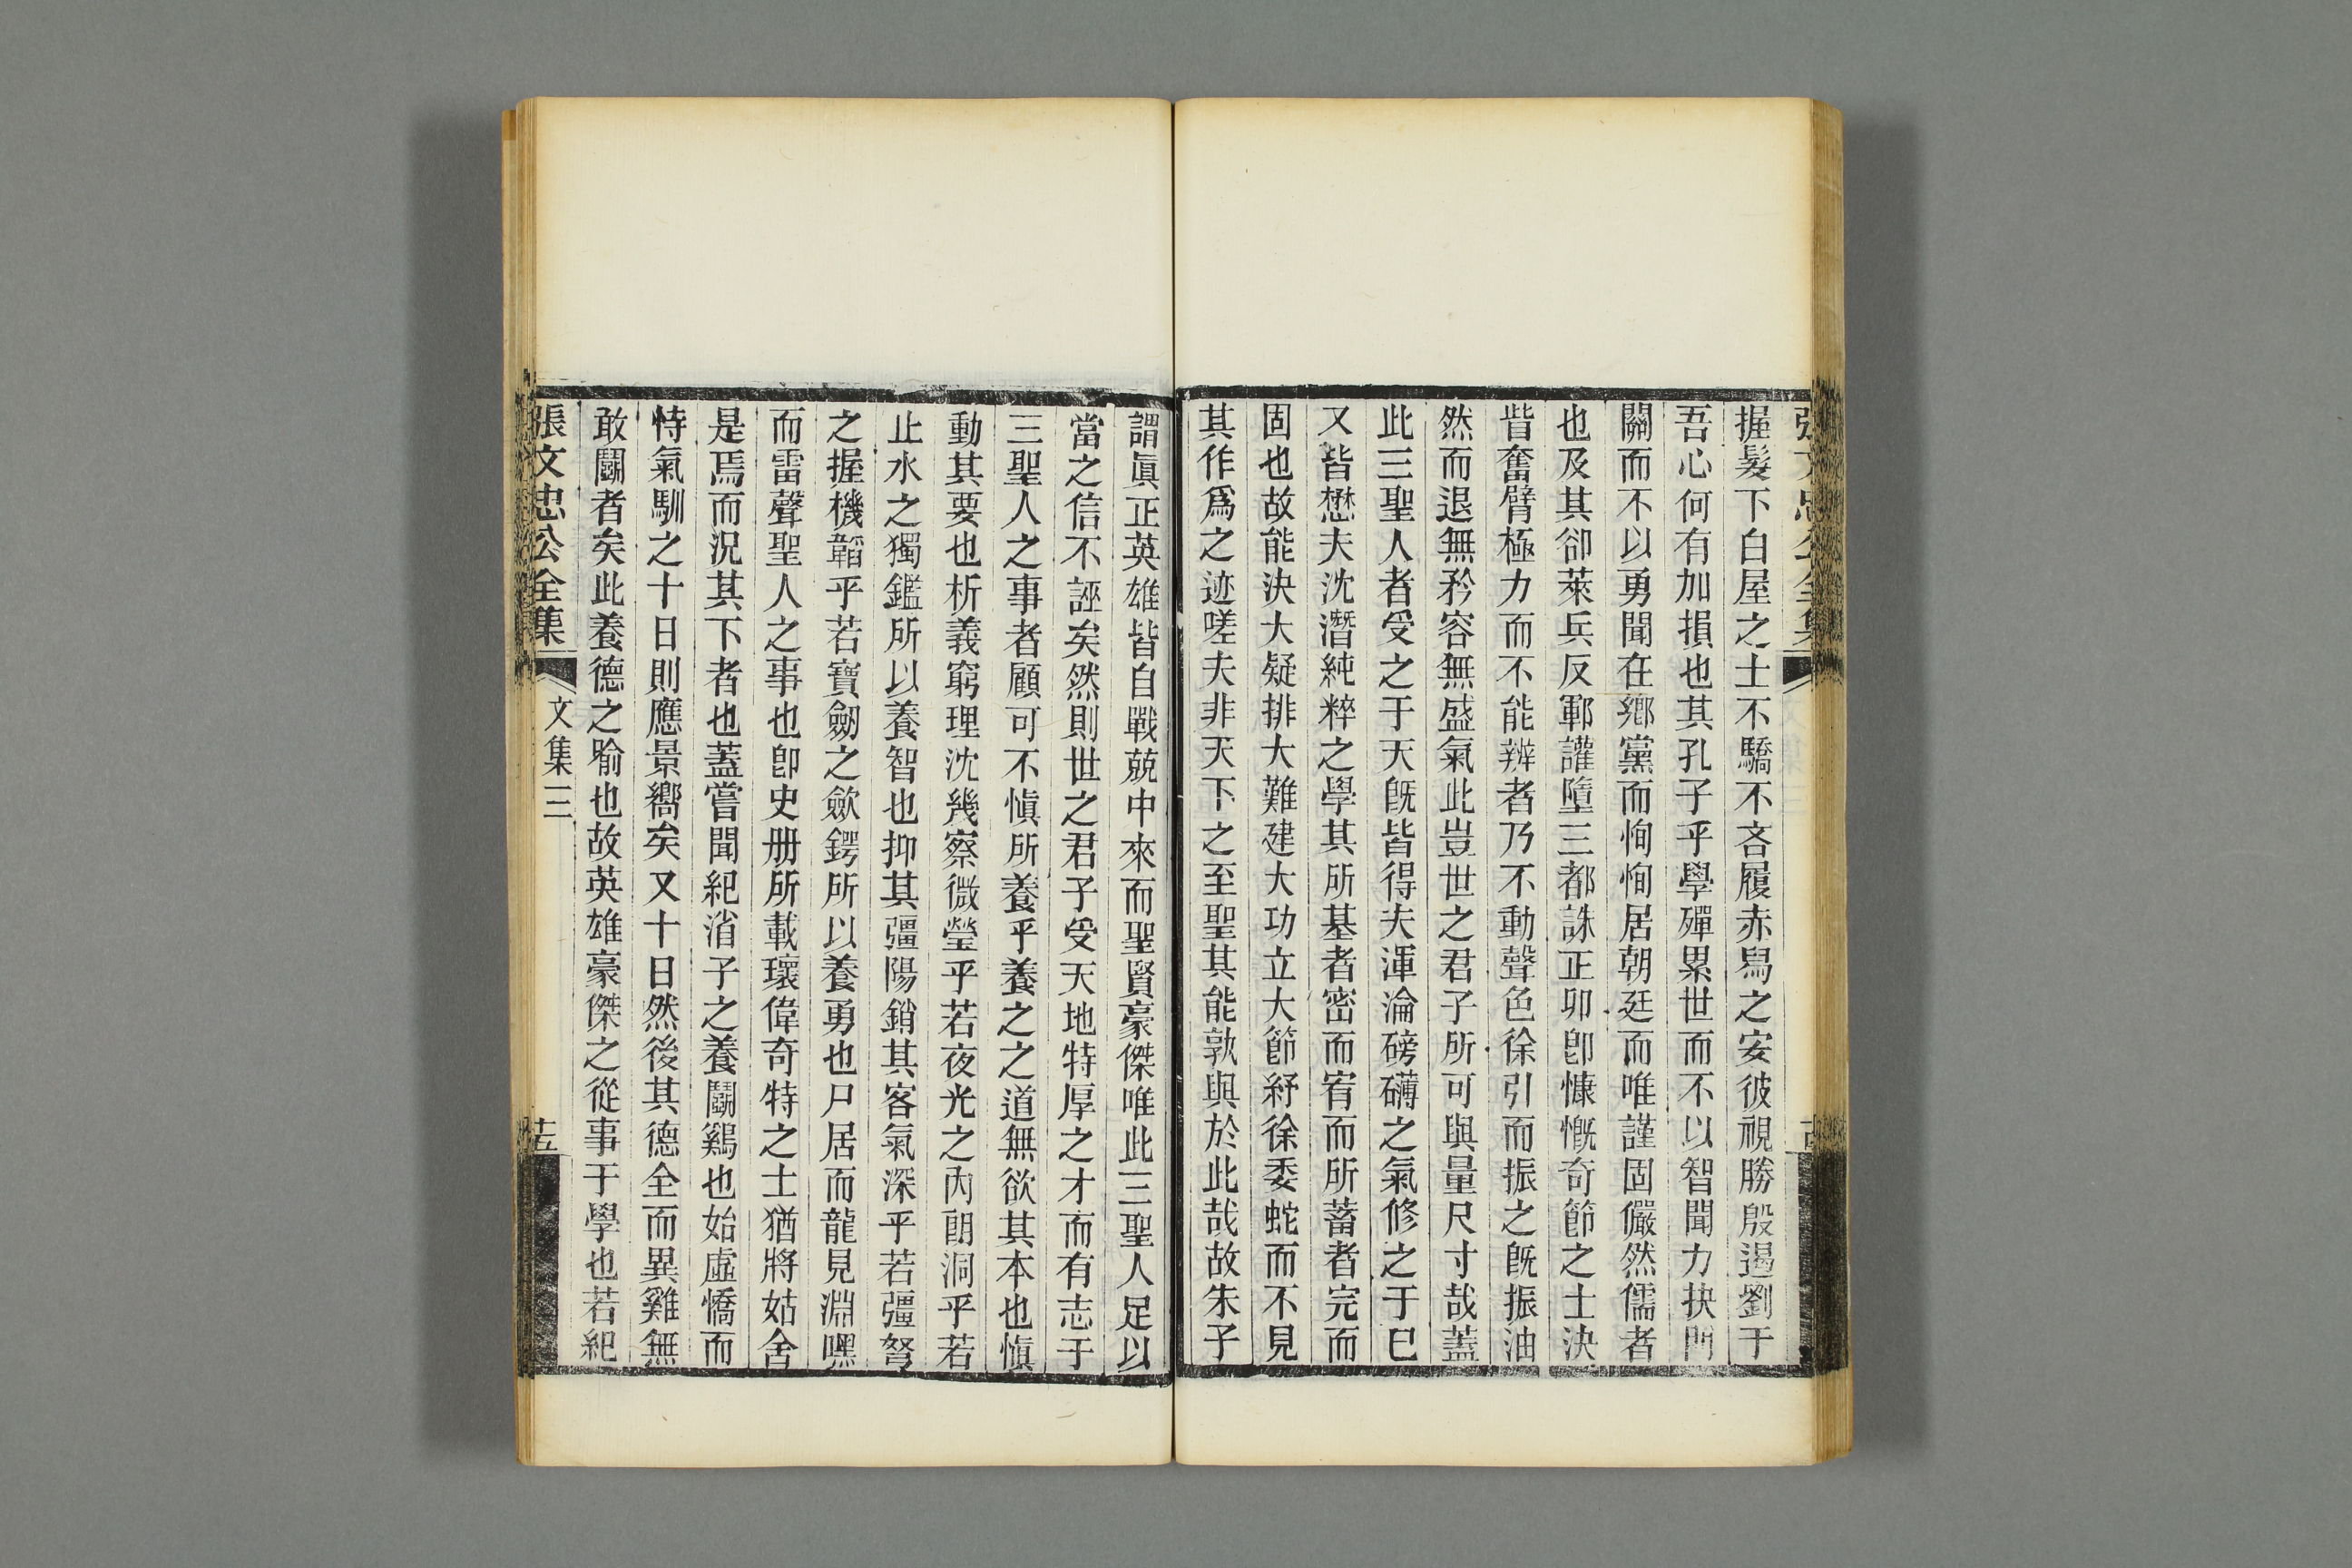 握髮下白屋之士不驕不吝履赤舄之安彼視勝殷遏劉于
吾心何有加損也其孔子乎學殫累世而不以智聞力抉門
關而不以勇聞在鄉黨而恂恂居朝廷而唯謹固儼然儒者
也及其卻萊兵反鄆讙墮三都誅正卯卽慷慨奇節之士決
眥奮臂極力而不能辨者乃不動聲色徐引而振之旣振油
然而退無矜容無盛氣此豈世之君子所可與量尺寸哉蓋
此三聖人者受之于天旣皆得夫渾淪磅礡之氣修之于已
又皆懋夫沈潛純粹之學其所基者密而宥而所蓄者完而
固也故能決大疑排大難建大功立大節紓徐委蛇而不見
其作爲之迹嗟夫非天下之至聖其能孰與於此哉故朱子
謂眞正英雄皆自戰兢中來而聖賢豪傑唯此三聖人足以
當之信不誣矣然則世之君子受天地特厚之才而有志于
三聖人之事者顧可不愼所養乎養之之道無欲其本也愼
動其要也析義窮理沈幾察微瑩乎若夜光之內朗洞乎若
止水之獨鑑所以養智也抑其彊陽銷其客氣深乎若彊弩
之握機韜乎若寶劒之歛鍔所以養勇也尸居而龍見淵嘿
而雷聲聖人之事也卽史册所載瓌偉奇特之士猶將姑舍
是焉而況其下者也蓋嘗聞紀渻子之養鬭鷄也始虛憍而
恃氣馴之十日則應景嚮矣又十日然後其德全而異雞無
敢鬭者矣此養德之喻也故英雄豪傑之從事于學也若紀
張文忠公全集
文集三
十五